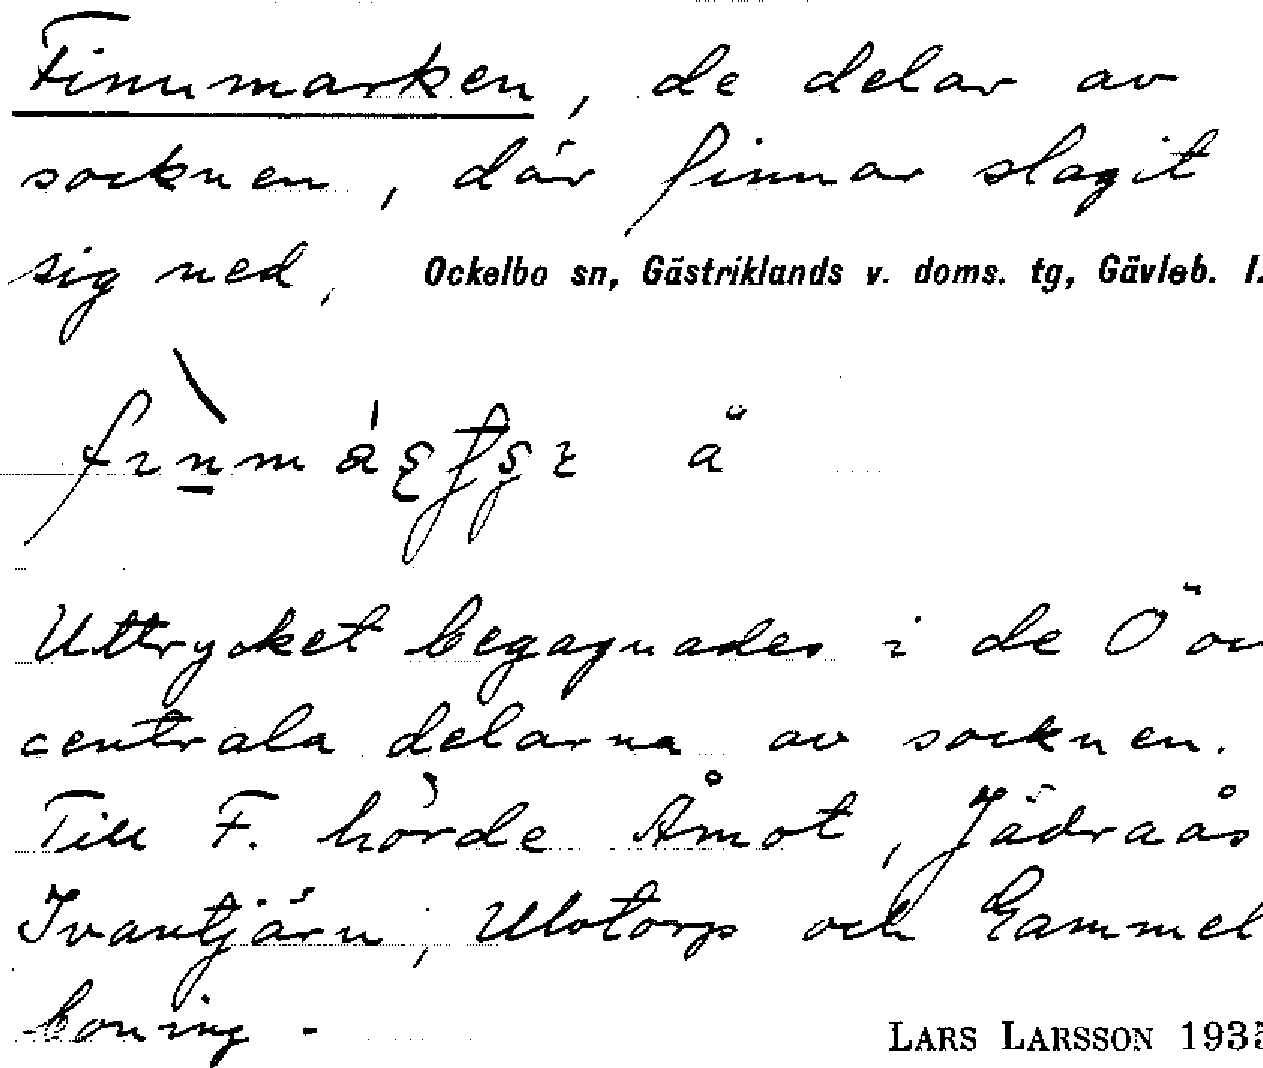 Finnmarken, de delar av
socknen, där finnar slagit
sig ned, Ockelbo sn, Gästriklands v. doms. tg, Gävleb. l.
Uttrycket begagnades i de Ö ov
centrala delarna av socknen.
Till F. hörde Åmot, Jädraås
Ivantjärn, Ulvtorp och Gammel
boning.
LARS LARSSON 1935